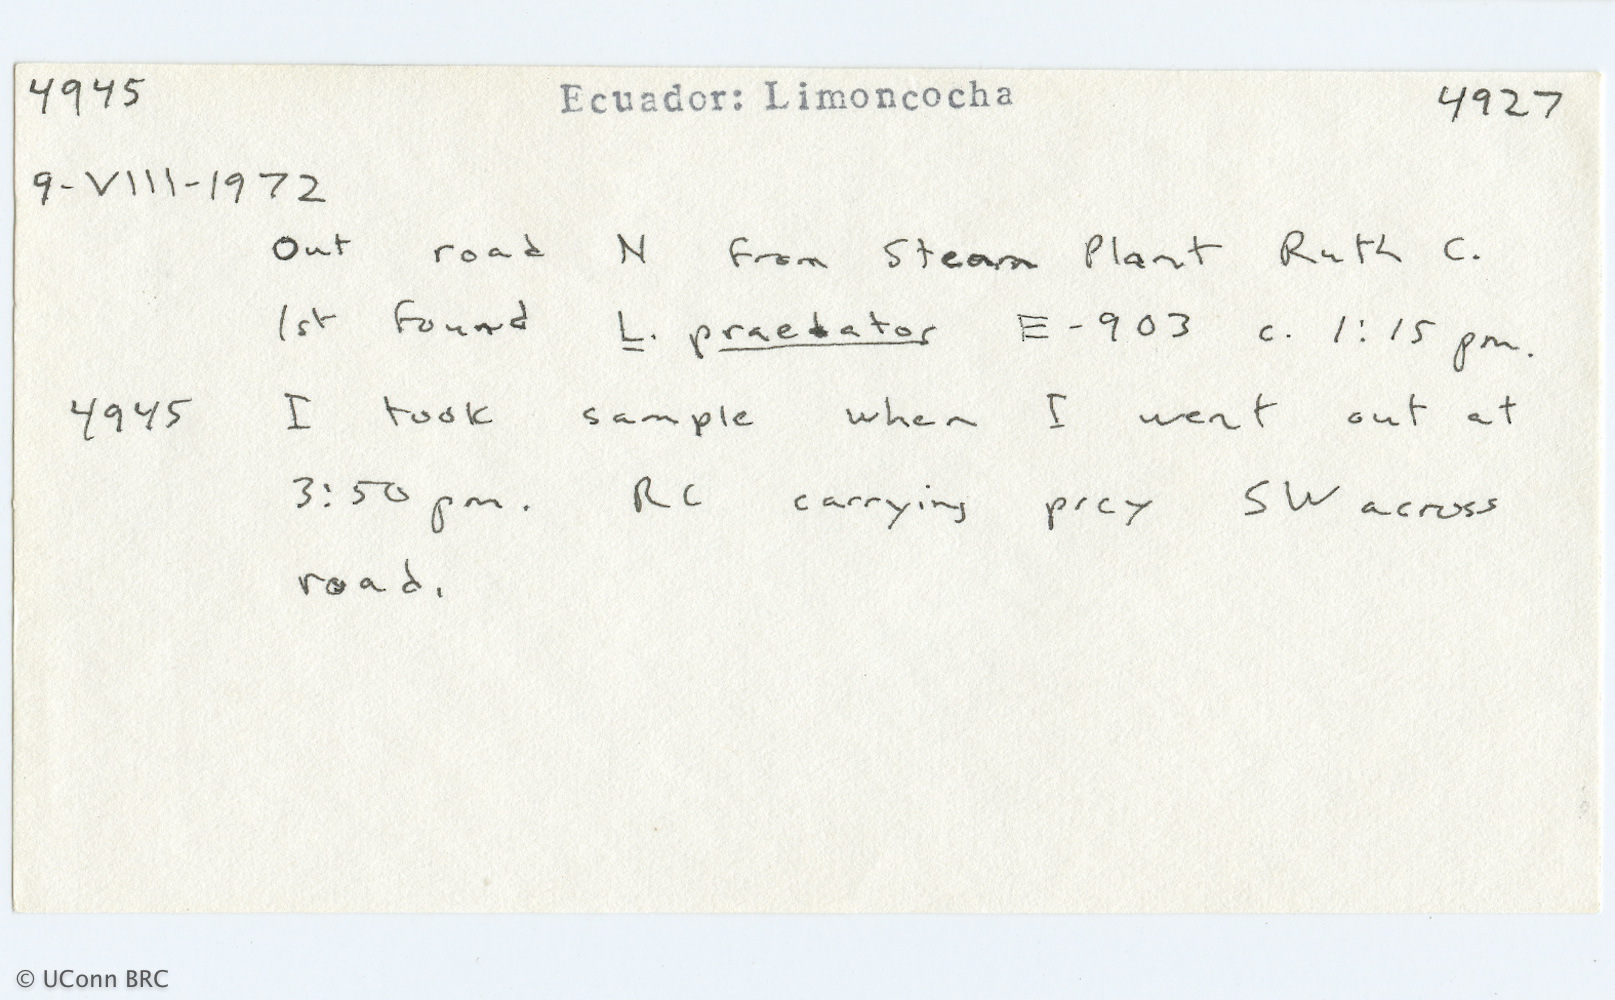 4945 Ecuador: Limoncocha 4927
9-VIII-1972
Out road N from Steam Plant Ruth C.
1st found L. praedator E-903 c. 1:15 pm.
4945 I took sample when I went out at
3:50 pm. RC carrying prey SW across
road.
© UConn BRC